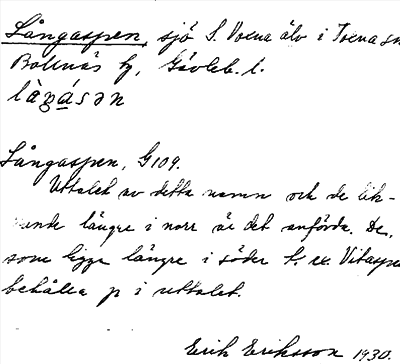 Långaspen, sjö S. Voxna älv i Voxna sn
Bollnäs tg, Gävleb. l.
làŋásən
Långaspen, G109.
Uttalet av detta namn och de lik-
nande längre i norr är det anförda. De,
som ligga längre i söder t. ex. Vitaspen
behålla p i uttalet.
Erik Eriksson 1930.